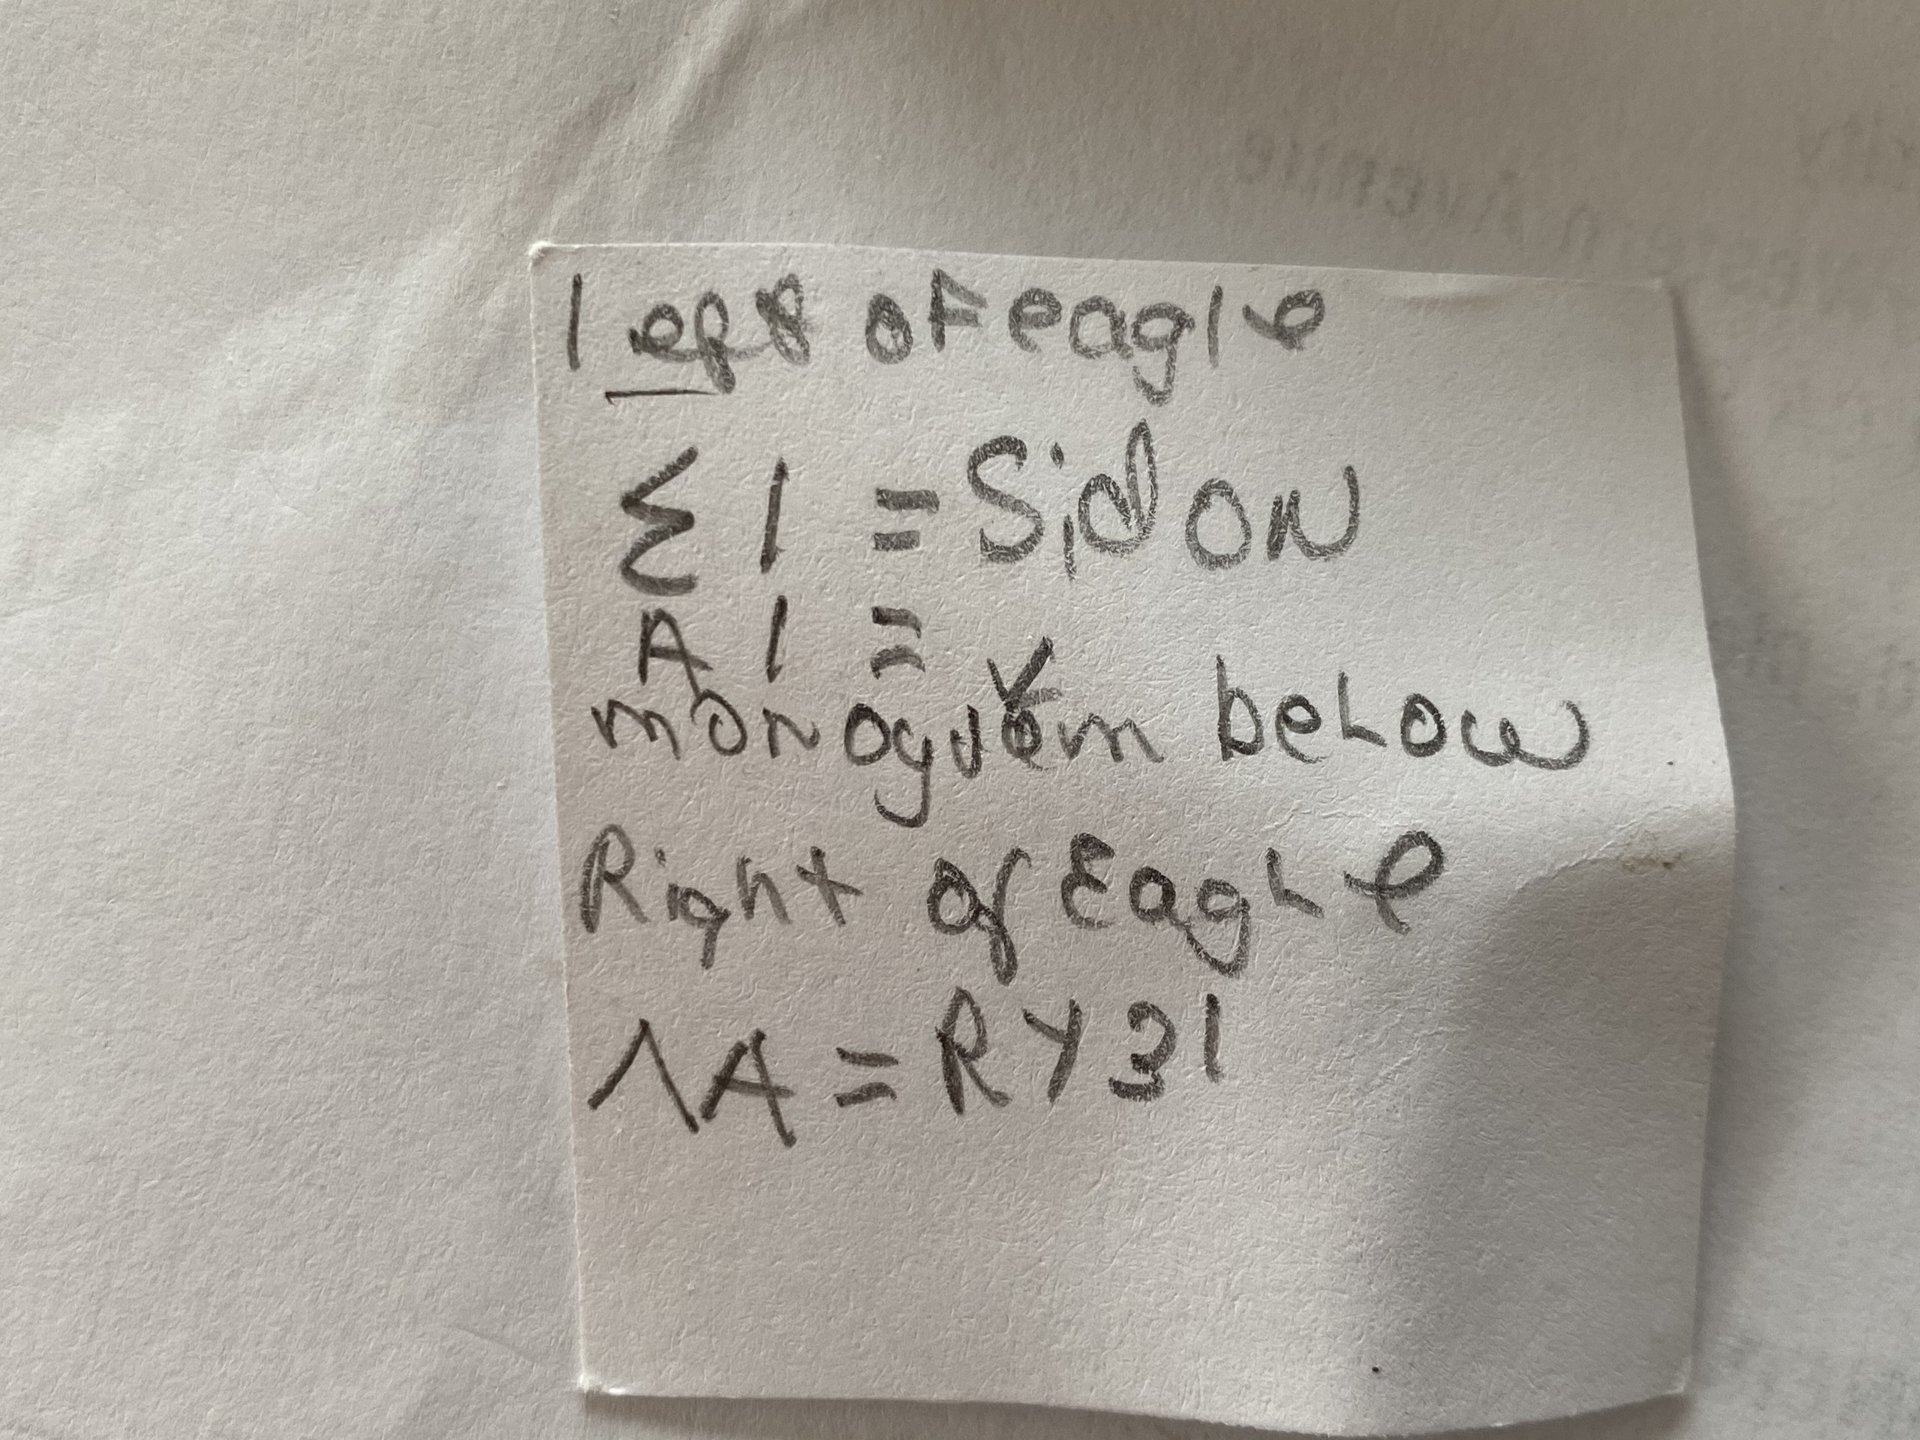 left of eagle
Σ I = Sidon
A I =
monogram below
Right of EagLe
ΛA = RY 31